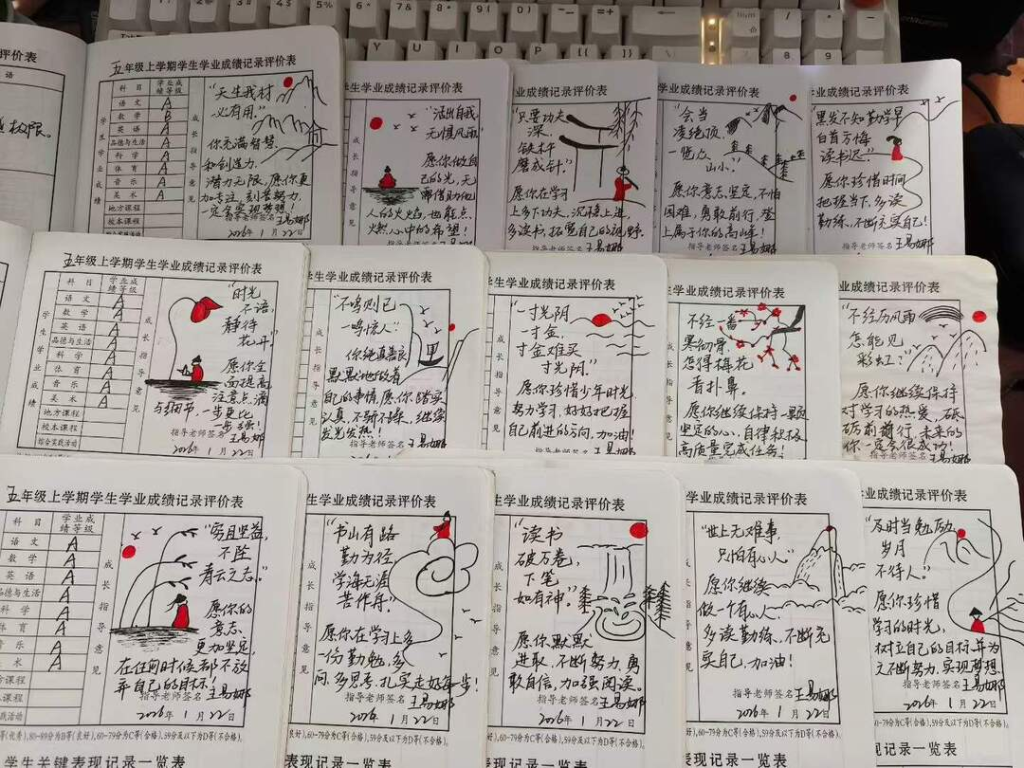 五年级上学期学生学业成绩记录评价表
科目 学业成绩等级
语文 A
数学 B
英语 A
品德与生活 A
科学 A
体育 A
音乐 A
美术 A
地方课程
校本课程
学生学业成绩
成长指导意见
“天生我材
必有用。”
你充满智慧
和创造力，
潜力无限，愿你更
加专注，刻苦努力，
一定会实现梦想！
指导老师签名
2026年1月22日
学业成绩记录评价表
成长指导意见
“活出自我，
无惧风雨”
愿你做自
己的光，无
需借助他
人的火焰，也能点
燃心中的希望！
2026年1月22日
学业成绩记录评价表
“只要功夫
深，
铁杵
磨成针。”
愿你在学习
上多下功夫，沉稳上进，
多读书，拓宽自己的视野。
指导老师签名
学业成绩记录评价表
“会当
凌绝顶，
一览众
山小。”
愿你意志坚定，不怕
困难，勇敢前行，登
上属于你的高峰！
指导老师签名
学业成绩记录评价表
黑发不知勤学早，
白首方悔
读书迟”
愿你珍惜时间
把握当下，多读
勤练，不断充实自己！
指导老师签名
五年级上学期学生学业成绩记录评价表
科目 学业成绩等级
语文 A
数学 A
英语 A
品德与生活 A
科学 A
体育 A
音乐 A
美术 A
地方课程
校本课程
综合实践活动
学生学业成绩
成长指导意见
“时光
不语，
静待
花开。”
愿你全
面提高，
注意点滴
与细节，一步更比
一步强！
指导老师签名
2026年1月22日
学业成绩记录评价表
成长指导意见
“不鸣则已
一鸣惊人”
你纯真善良，
默默地做着
自己的事情，愿你踏实
认真，不骄不躁，继续
发光发热！
指导老师签名
2026年1月22日
学业成绩记录评价表
“一寸光阴
一寸金，
寸金难买
寸光阴。”
愿你珍惜少年时光，
努力学习，好好把握
自己前进的方向，加油！
指导老师签名
学业成绩记录评价表
不经一番
寒彻骨，
怎得梅花
香扑鼻。
愿你继续保持一颗
坚定的心，自律积极，
高质量完成任务！
指导老师签名
业成绩记录评价表
“不经历风雨
怎能见
彩虹？”
愿你继续保持
对学习的热爱，砥
砺前行，未来的
你一定会很成功！
指导老师签名
五年级上学期学生学业成绩记录评价表
科目 学业成绩等级
语文 A
数学 A
英语 A
品德与生活 A
科学 A
体育 A
音乐 A
美术 A
成长指导意见
“穷且益坚，
不坠
青云之志。”
愿你的
意志，
更加坚定，
在任何时候都不放
弃自己的目标！
指导老师签名
2026年1月22日
学业成绩记录评价表
成长指导意见
“书山有路
勤为径
学海无涯
苦作舟。”
愿你在学习上多一
份勤勉，多
问，多思考，扎实走好每步！
指导老师签名
2026年1月22日
学业成绩记录评价表
成长指导意见
“读书
破万卷，
下笔
如有神。”
愿你默默
进取，不断努力，勇
敢自信，加强阅读。
指导老师签名
2026年1月22日
学业成绩记录评价表
“世上无难事，
只怕有心人”
愿你继续
做一个有心人，
多读勤练，不断充
实自己，加油！
指导老师签名
2026年1月22日
业成绩记录评价表
“及时当勉励，
岁月
不待人。”
愿你珍惜
学习的时光，
树立自己的目标，并为
之不断努力，实现梦想
指导老师签名
2026年1月22日
60~79分为C等(合格)，59分及以下为D等(不合格)。
学生关键表现记录一览表
表现记录一览表